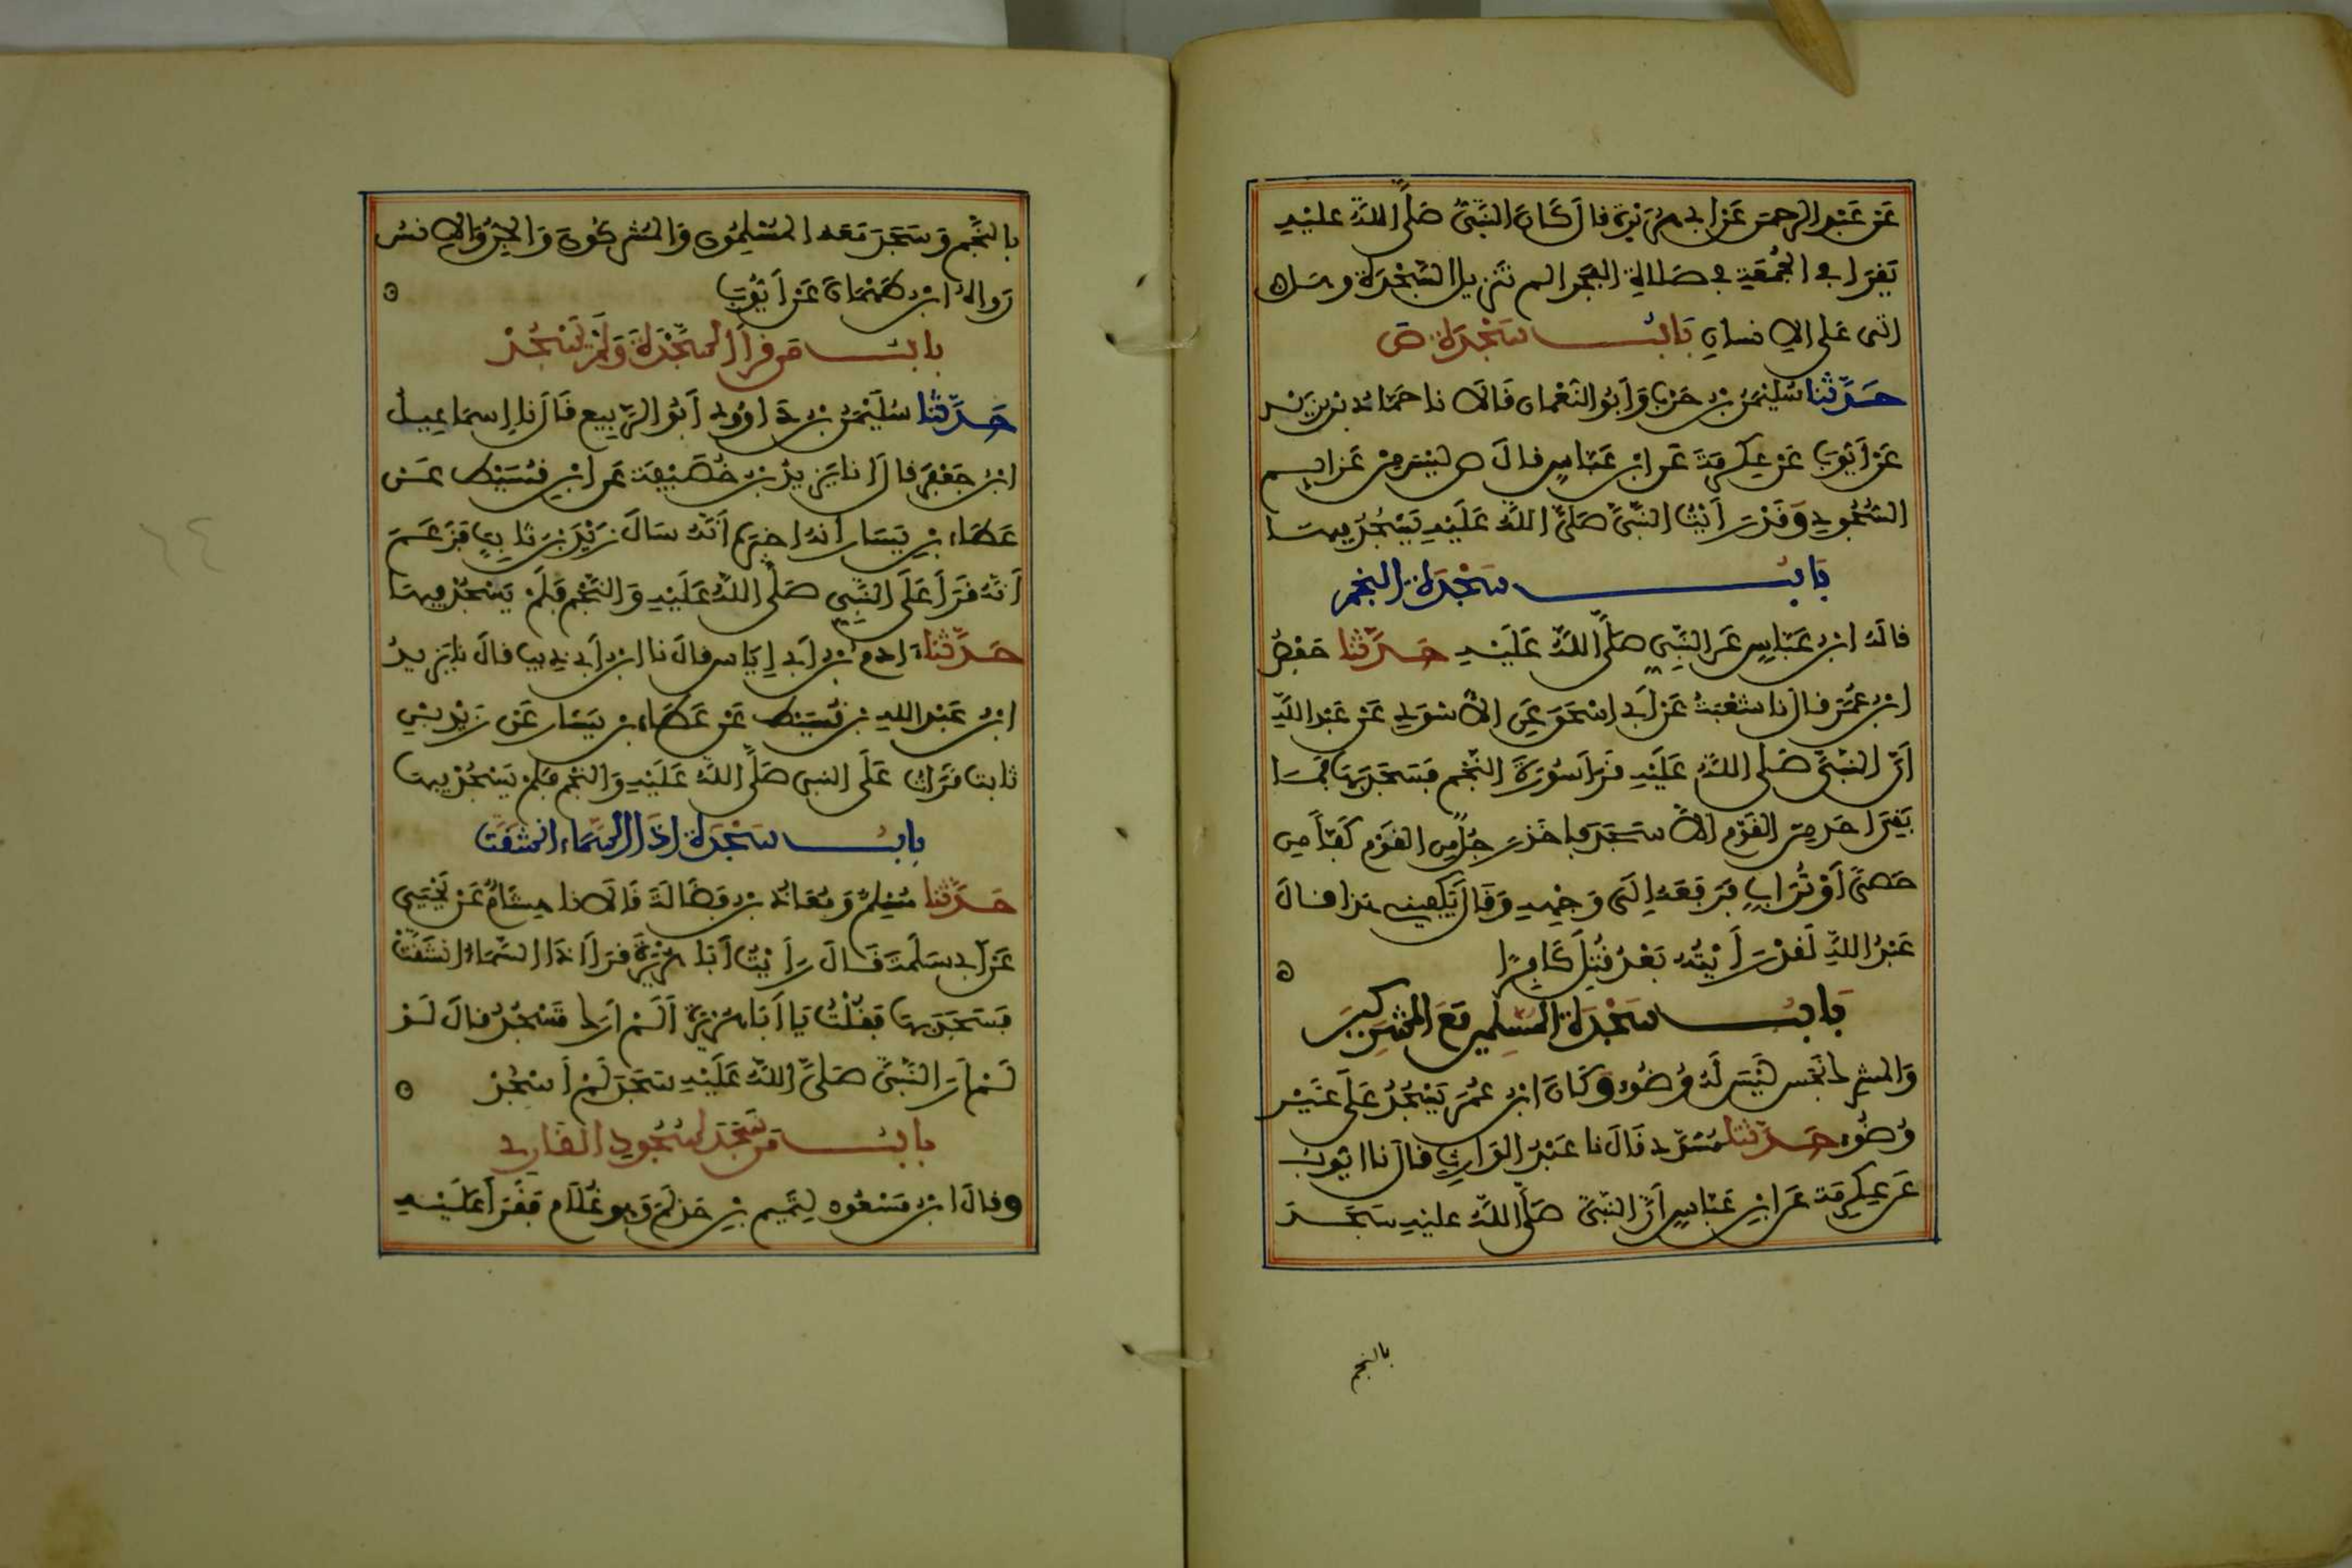 عَنْ عَبْدِ الرحمن عَنْ ابي هُرَيْرَةَ قال كَانَ النَّبِيُّ صَلَّى اللَّهُ عليْهِ
يَقْرَا في الجُمُعَةِ في صَلاةِ الفَجْرِ الم تَنْزِيلُ السَّجْدَةَ وهل
اتى عَلى الانسانِ بَابُ سَجْدَةِ ص
حَدَّثَنا سُلَيْمَنُ بْنُ حَرْبٍ وَأبُو النُّعْمان قَالَا نا حَمَّادُ بْنُ زَيْدٍ
عَنْ أَيُّوبَ عَنْ عِكْرِمَةَ عَنِ ابْنِ عَبَّاسٍ قالَ ص لَيْسَ مِنْ عَزايِمِ
السُّجُودِ وَقَدْ رَأَيْتُ النَّبِيَّ صَلَّى اللَّهُ عَلَيْهِ يَسْجُدُ فِيهَا
بَابُ سَجْدَةِ النجم
قالَهُ ابْنُ عَبَّاسٍ عَنِ النَّبِيِّ صَلَّى اللَّهُ عَلَيْهِ حَدَّثَنا حَفْصُ
ابْنُ عُمَرَ قال نا شُعْبَةُ عَنْ أَبِي اسْحَقَ عَنِ الاسْوَدِ عَنْ عَبْدِ اللَّهِ
أَنَّ النَّبِيَّ صَلَّى اللَّهُ عَلَيْهِ قَرَأَ سُورَةَ النَّجْمِ فَسَجَدَ بِهَا فَمَا
بَقِيَ احَدٌ مِنَ القَوْمِ الَّا سَجَدَ فاخَذَ رَجُلٌ مِن القَوْمِ كَفًّا مِن
حَصًى أَوْ تُرَابٍ فَرَفَعَهُ إِلَى وَجْهِهِ وَقَالَ يَكْفِينِي هَذا قالَ
عَبْدُ اللَّهِ لَقَدْ رَأَيْتُهُ بَعْدُ قُتِلَ كَافِرًا ه
بَابُ سَجْدَةِ المُسْلِمِينَ مَعَ المُشْرِكِينَ
وَالمشرك نَجَسٌ لَيْسَ لَهُ وُضُوء وَكَانَ ابْنُ عُمَرَ يَسْجُدُ عَلَى غَيْرِ
وُضُوء حَدَّثَنا مُسَدَّد قَالَ نا عَبْدُ الوَارِثِ قال نا ايُّوبُ
عَن عِكْرِمَةَ عَنِ ابْنِ عَبَّاسٍ أَنَّ النَّبِيَّ صَلَّى اللَّهُ عليْهِ سَجَدَ
بالنجم
بِالنَّجْمِ وَسَجَدَ مَعَهُ المُسْلِمُون وَالمُشْرِكُونَ وَالجِنُّ وَالانسُ
رَوَاهُ ابْنُ طَهْمَانَ عَنْ أَيُّوبَ ه
بابُ من قرأ السَّجْدَةَ وَلَمْ يَسْجُدْ
حَدَّثَنا سُلَيْمَنُ بْنُ دَاوُودَ أَبُو الرَّبِيعِ قَالَ نا إِسماعِيلُ
ابْنُ جَعْفَرٍ قال انا يَزِيدُ بْنُ خُصَيْفَةَ عَنِ ابْنِ قُسَيْطٍ عَنْ
عَطَاءِ بْنِ يَسَارٍ أنه اخبَره أَنَّهُ سَالَ زَيْدَ بْنَ ثَابِتٍ فَزَعَمَ
أَنَّهُ قَرَأَ عَلَى النَّبِيِّ صَلَّى اللَّهُ عَلَيْهِ وَالنَّجْمِ فَلَمْ يَسْجُدْ فِيهَا
حَدَّثَنا ادم بْنُ أَبِي إِيَاسٍ قالَ نا ابْنُ أَبِي ذِيبٍ قالَ نا يَزِيدُ
ابْنُ عَبْدِ اللهِ بْنِ قُسَيْطٍ عَنْ عَطَاءِ بْنِ يَسَارٍ عَنْ زَيْدِ بْنِ
ثَابت قَرَاتُ عَلَى النبي صَلَّى اللَّهُ عَلَيْهِ وَالنَّجْمِ فَلَمْ يَسْجُدْ فِيهَا
بابُ سَجْدَةِ إذَا السَّمَاءُ انْشَقَّتْ
حَدَّثَنا مُسْلِمٌ وَمُعَاذُ بْنُ فَضَالَةَ قَالَا نا هِشَامٌ عَنْ يَحْيَى
عَنْ أبي سَلَمَةَ قَالَ رَأَيْتُ أَبَا هُرَيْرَةَ قرَأَ اذَا السَّمَاءُ انْشَقَّتْ
فَسَجَدَ بِهَا فَقُلْتُ يَا أَبَا هُرَيْرَةَ أَلَمْ ارَكَ تَسْجُدُ قالَ لَوْ
لَمْ أَرَ النَّبِيَّ صَلَّى اللَّهُ عَلَيْهِ سَجَدَ لَمْ أَسْجُدْ ه
بابُ مَنْ سَجَدَ لِسُجُودِ القَارِي
وقالَ ابْنُ مَسْعُود لِتَمِيمِ بْنِ حَذْلَمٍ وَهو غُلَام فَقَرَأَ عَلَيْهِ
٦٤